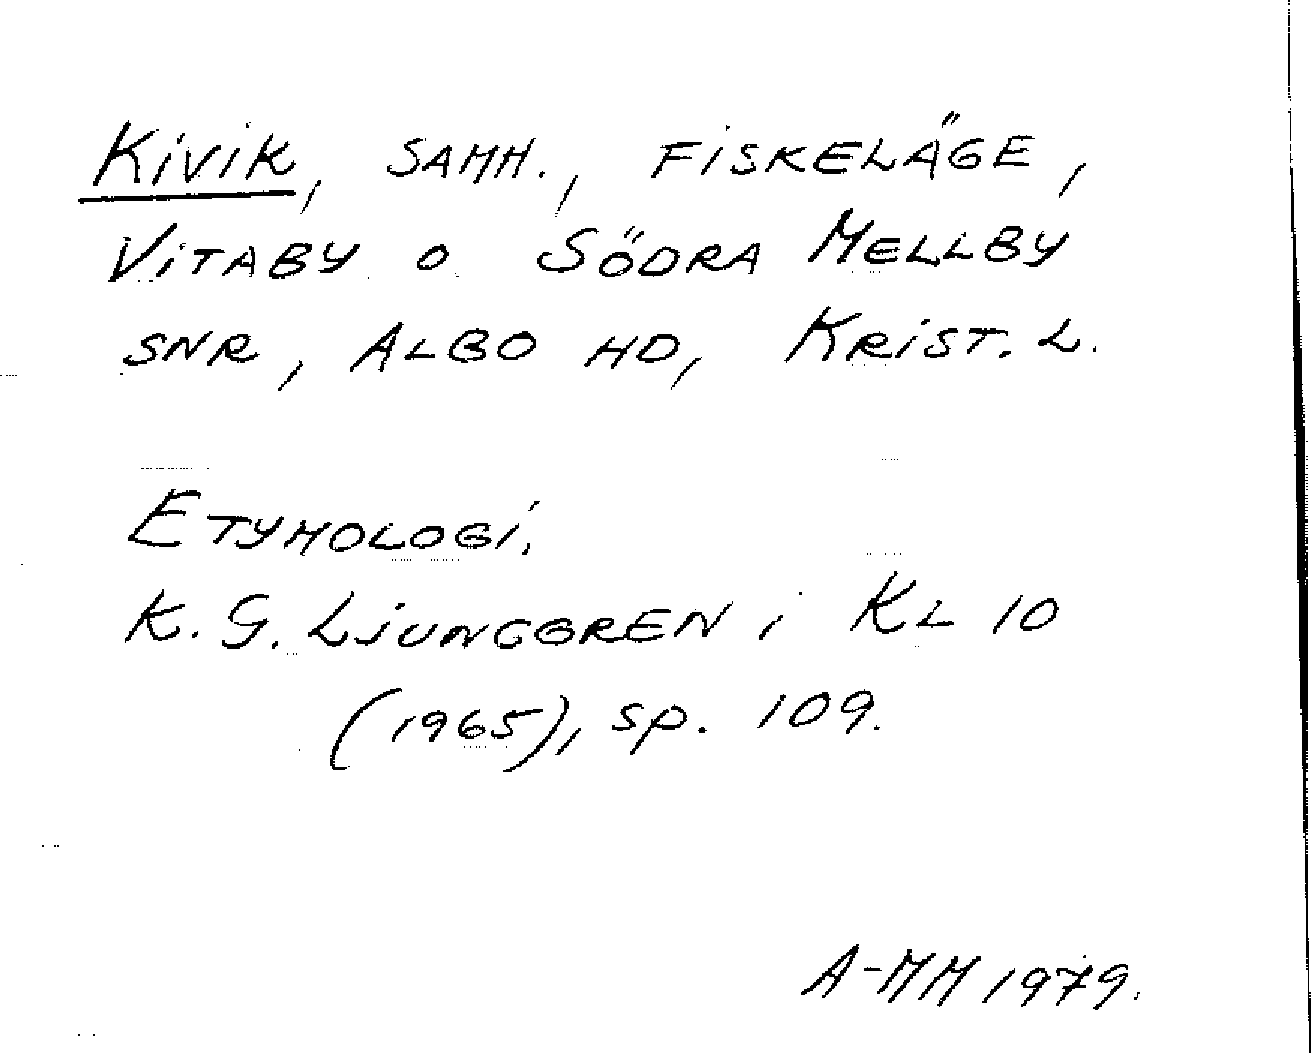 Kivik, SAMH., FISKELÄGE,
VITABY o SÖDRA MELLBY
SNR, ALBO HD, KRIST. L.
ETYMOLOGI.
K. G. LJUNGGREN i KL 10
(1965), sp. 109.
A-MM 1979.